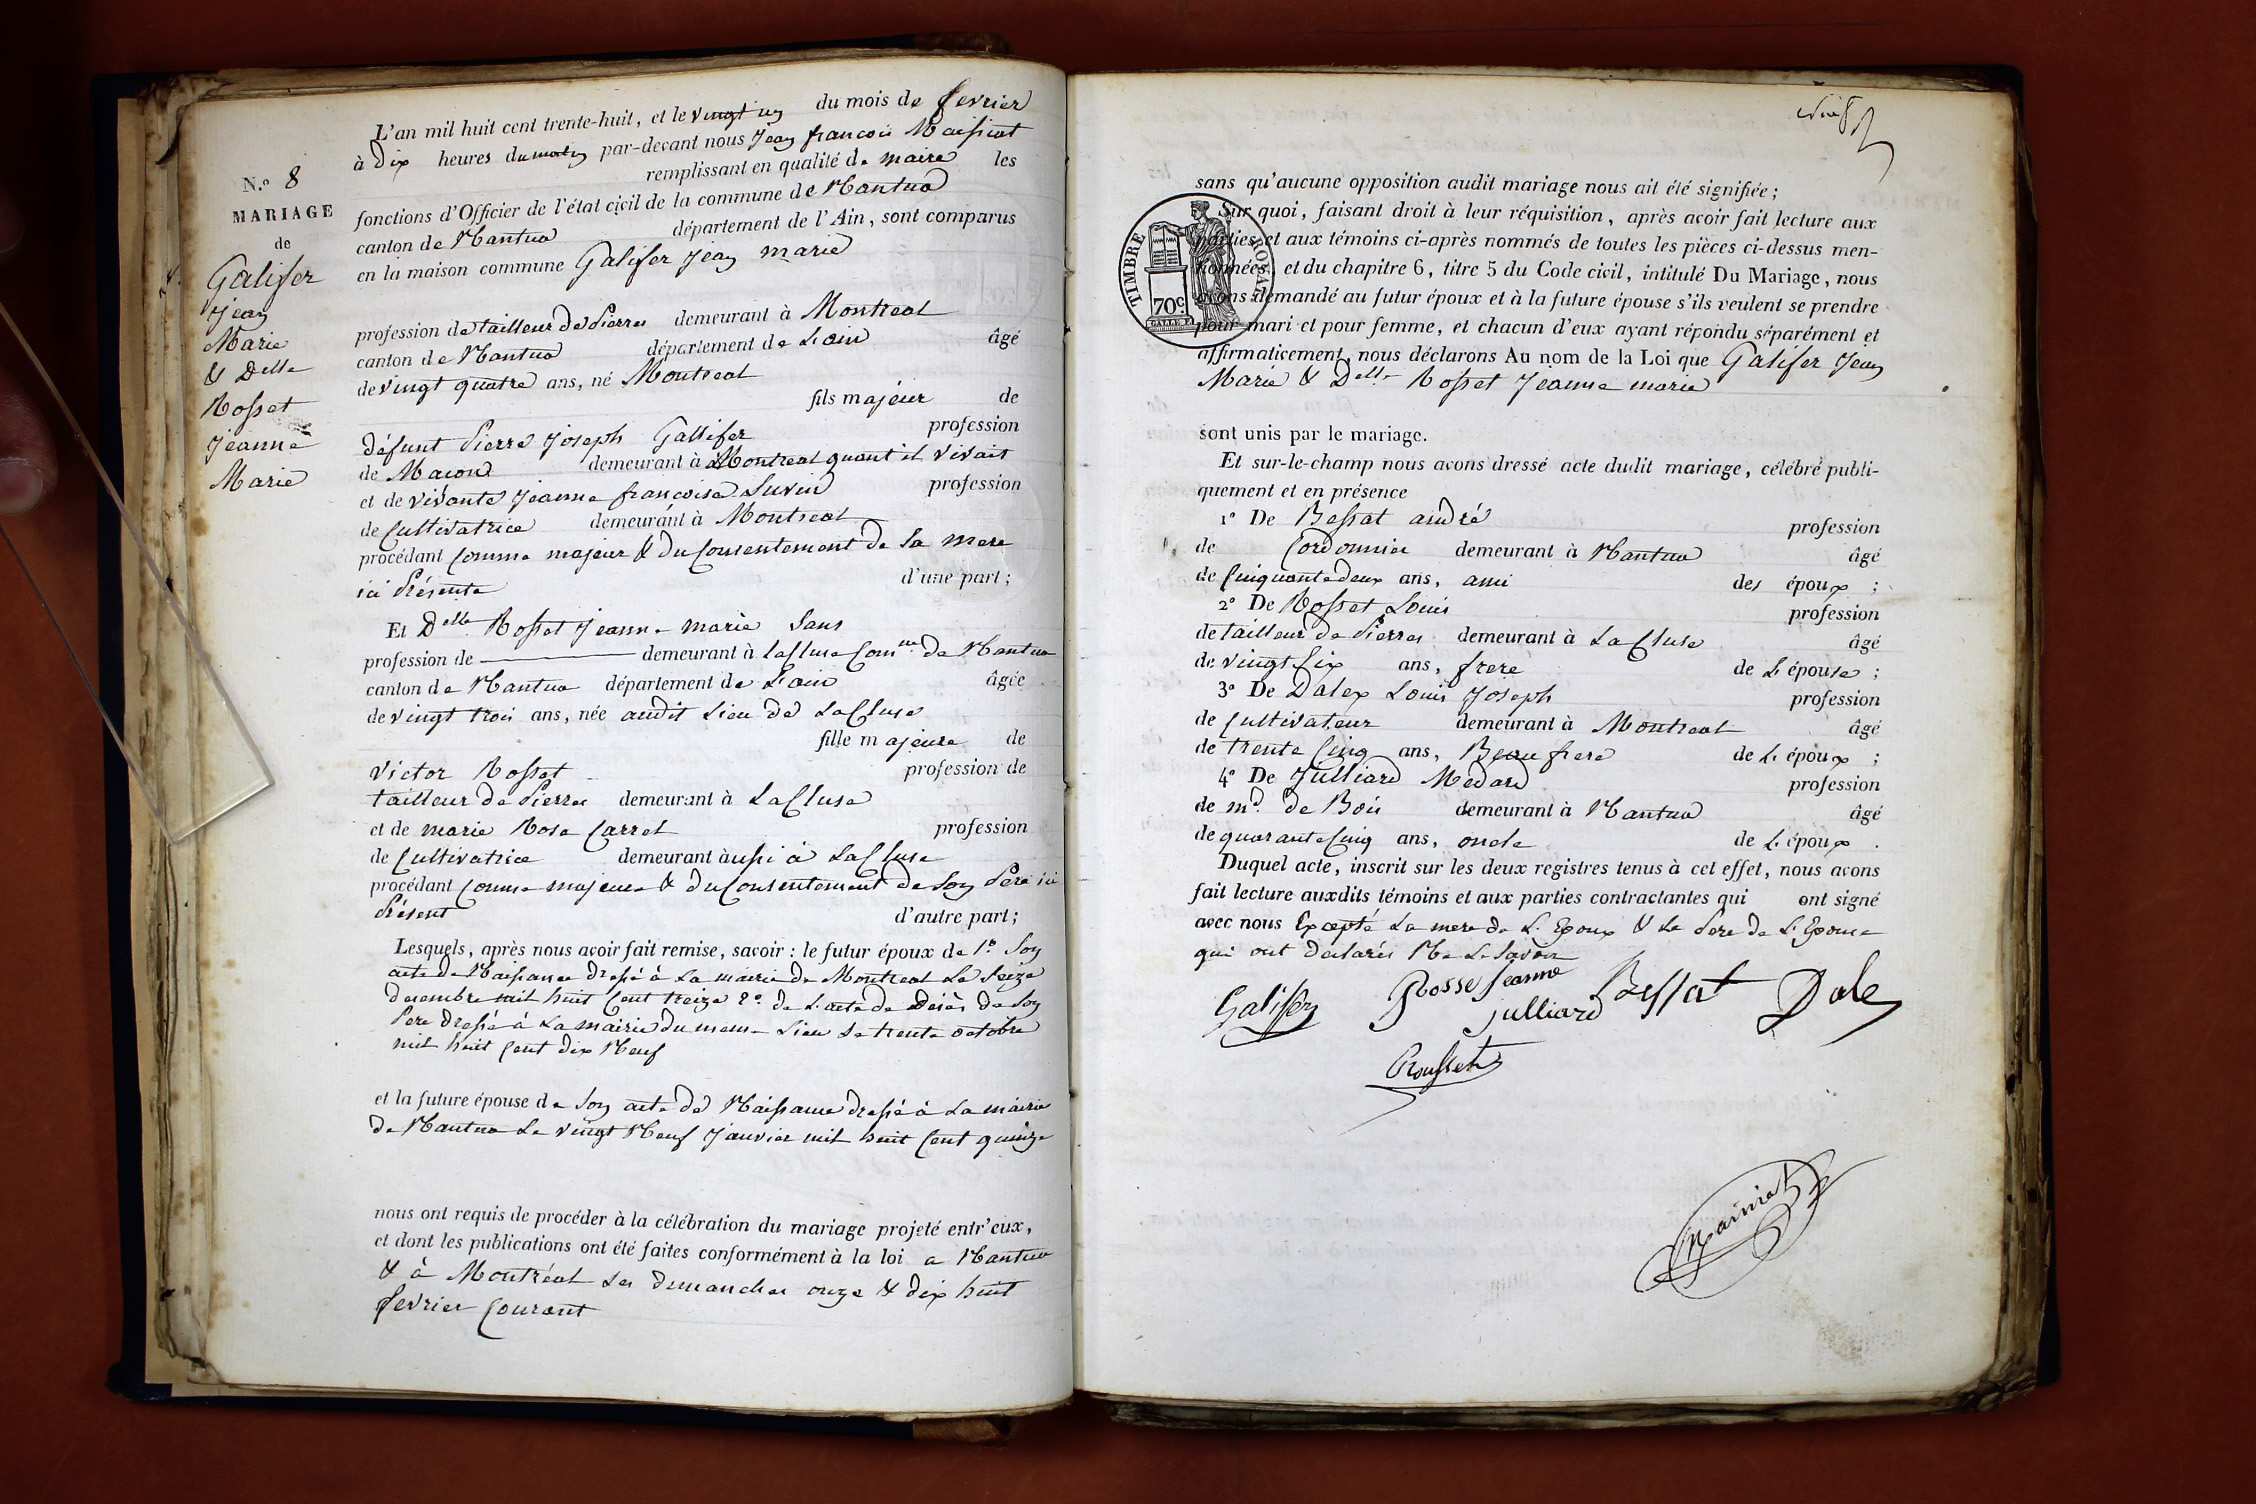 L'an mil huit cent trente-huit, et le vingt un du mois de fevrier
à Dix heures du matin par-devant nous Jean francois Maissiat
remplissant en qualité de maire les
N.º 8
MARIAGE
de
Galifer
Jean
Marie
& Delle
Rosset
Jeanne
Marie
fonctions d'Officier de l'état civil de la commune de Nantua
canton de Nantua département de l'Ain, sont comparus
en la maison commune Galifer Jean marie
profession de tailleur de Pierres demeurant à Montreal
canton de Nantua département de L'ain âgé
de vingt quatre ans, né Montreal
fils majeur de
défunt Pierre Joseph Gallifer profession
de Macon demeurant à Montreal quant il vivait
et de vivante Jeanne francoise profession
de Cultivatrice demeurant à Montreal
procédant Comme majeur & du Consentement de sa mere
ici Présente d'une part;
Et Delle Rosset Jeanne marie Sans
profession de demeurant à LaCluse Comne de Nantua
canton de Nantua département de L'ain âgée
de vingt trois ans, née audit Lieu de LaCluse
fille majeure de
Victor Rosset profession de
tailleur de Pierres demeurant à LaCluse
et de marie Rose Carret profession
de Cultivatrice demeurant aussi à LaCluse
procédant Comme majeure & du Consentement de Son Pere ici
Présent d'autre part;
Lesquels, après nous avoir fait remise, savoir : le futur époux de 1º Son
acte de Naissance dressé à La mairie de Montreal Le Seize
decembre mil huit Cent treize 2º de L'acte de Décès de Son
Pere dressé à La mairie du meme Lieu Le trente octobre
mil huit Cent dix Neuf
et la future épouse de Son acte de Naissance dressé à La mairie
de Nantua Le vingt Neuf Janvier mil huit Cent quinze
nous ont requis de procéder à la célébration du mariage projeté entr'eux,
et dont les publications ont été faites conformément à la loi a Nantua
& à Montréal Les dimanches onze & dix huit
fevrier Courant
sans qu'aucune opposition audit mariage nous ait été signifiée;
Sur quoi, faisant droit à leur réquisition, après avoir fait lecture aux
parties et aux témoins ci-après nommés de toutes les pièces ci-dessus men-
tionnées, et du chapitre 6, titre 5 du Code civil, intitulé Du Mariage, nous
avons demandé au futur époux et à la future épouse s'ils veulent se prendre
pour mari et pour femme, et chacun d'eux ayant répondu séparément et
affirmativement, nous déclarons Au nom de la Loi que Galifer Jean
Marie & Delle Rosset Jeanne marie
TIMBRE ROYAL
70c.
sont unis par le mariage.
Et sur-le-champ nous avons dressé acte dudit mariage, célébré publi-
quement et en présence
1º De Bessat andré profession
de Cordonnier demeurant à Nantua âgé
de Cinquante deux ans, ami des époux ;
2º De Rosset Louis profession
de tailleur de Pierres demeurant à La Cluse âgé
de vingt Six ans, frere de L'épouse ;
3º De Dalex Louis Joseph profession
de Cultivateur demeurant à Montreal âgé
de trente Cinq ans, Beau frere de L'époux ;
4º De Julliard Medard profession
de md de Bois demeurant à Nantua âgé
de quarante Cinq ans, oncle de L'époux .
Duquel acte, inscrit sur les deux registres tenus à cet effet, nous avons
fait lecture auxdits témoins et aux parties contractantes qui ont signé
avec nous Excepté La mere de L'Epoux & Le Pere de L'Epouse
qui ont declarés Ne Le Savoir
Galiffer Rosse Jeanne Bessat Dalex
Julliard
Rousset
Maissiat